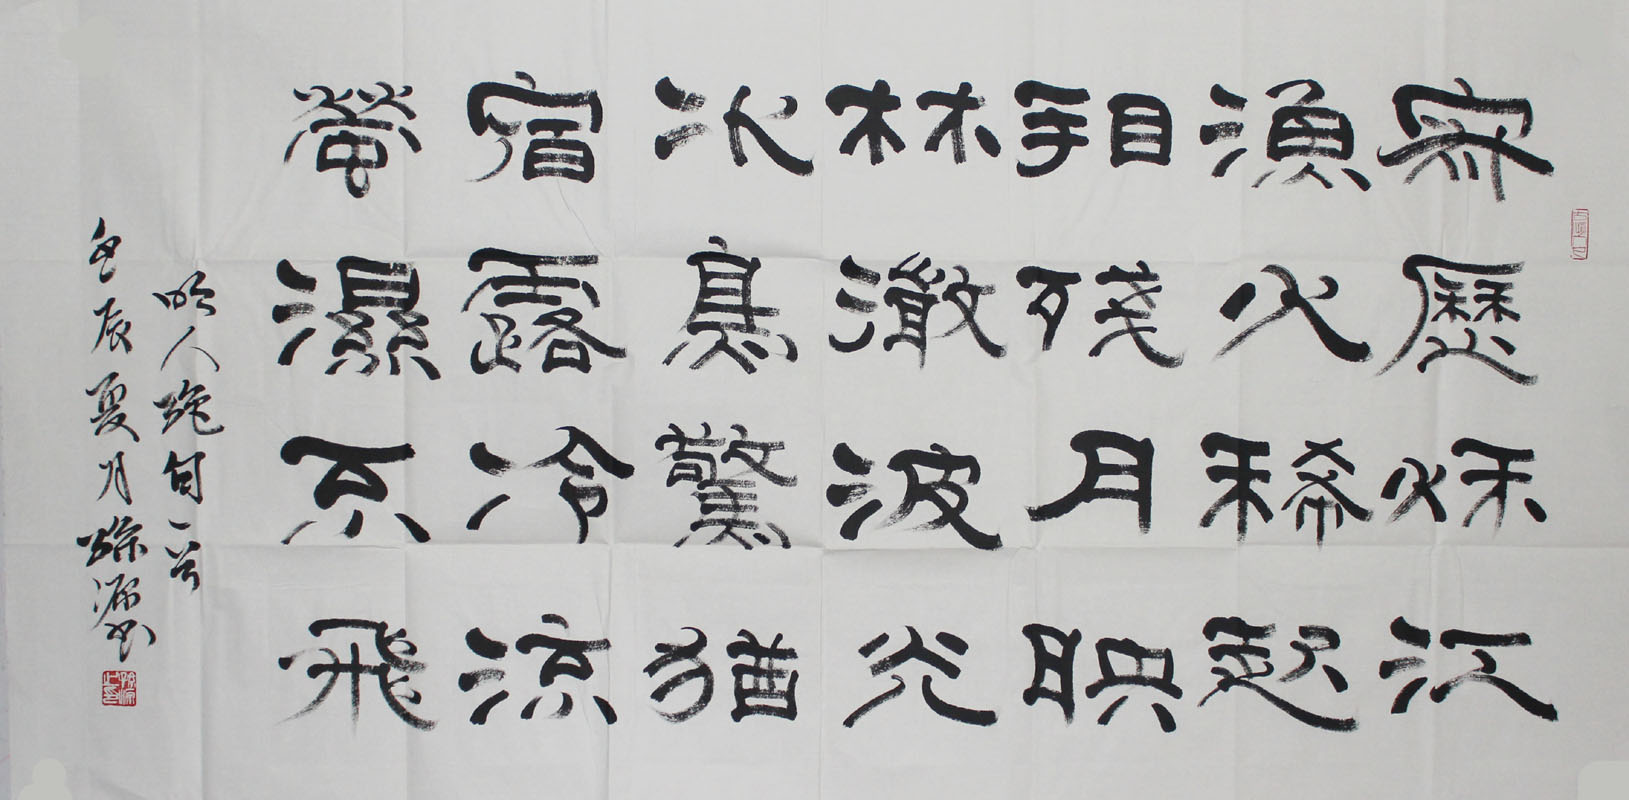 寂歷秋江
漁火稀起
看殘月映
林微波光
水鳥驚猶
宿露冷流
螢濕不飛
明人絕句一首
壬辰夏月 源書